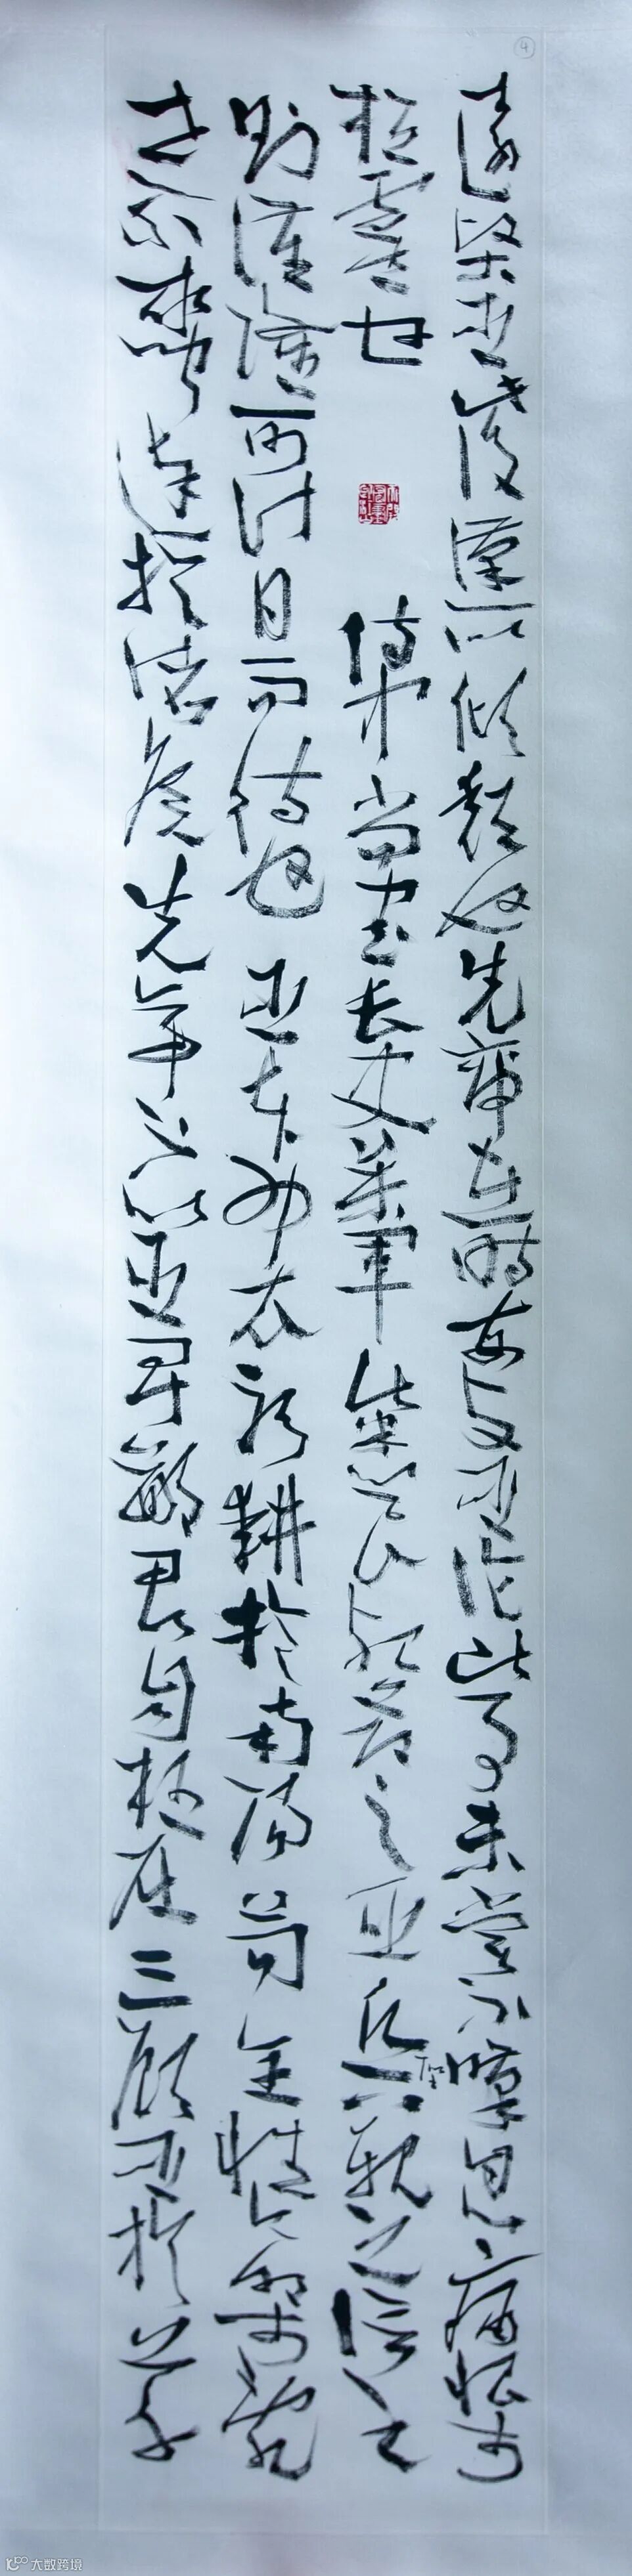 遠賢臣此後漢所以傾頹也先帝在時每與臣論此事未嘗不嘆息痛恨於
桓靈也 侍中尚書長史參軍此悉死節之臣親之信之
則漢隆可計日而待也 臣本布衣躬耕於南陽苟全性命於亂
世不求聞達於諸侯先帝不以臣卑鄙猥自枉屈三顧臣於草
4
大数跨境